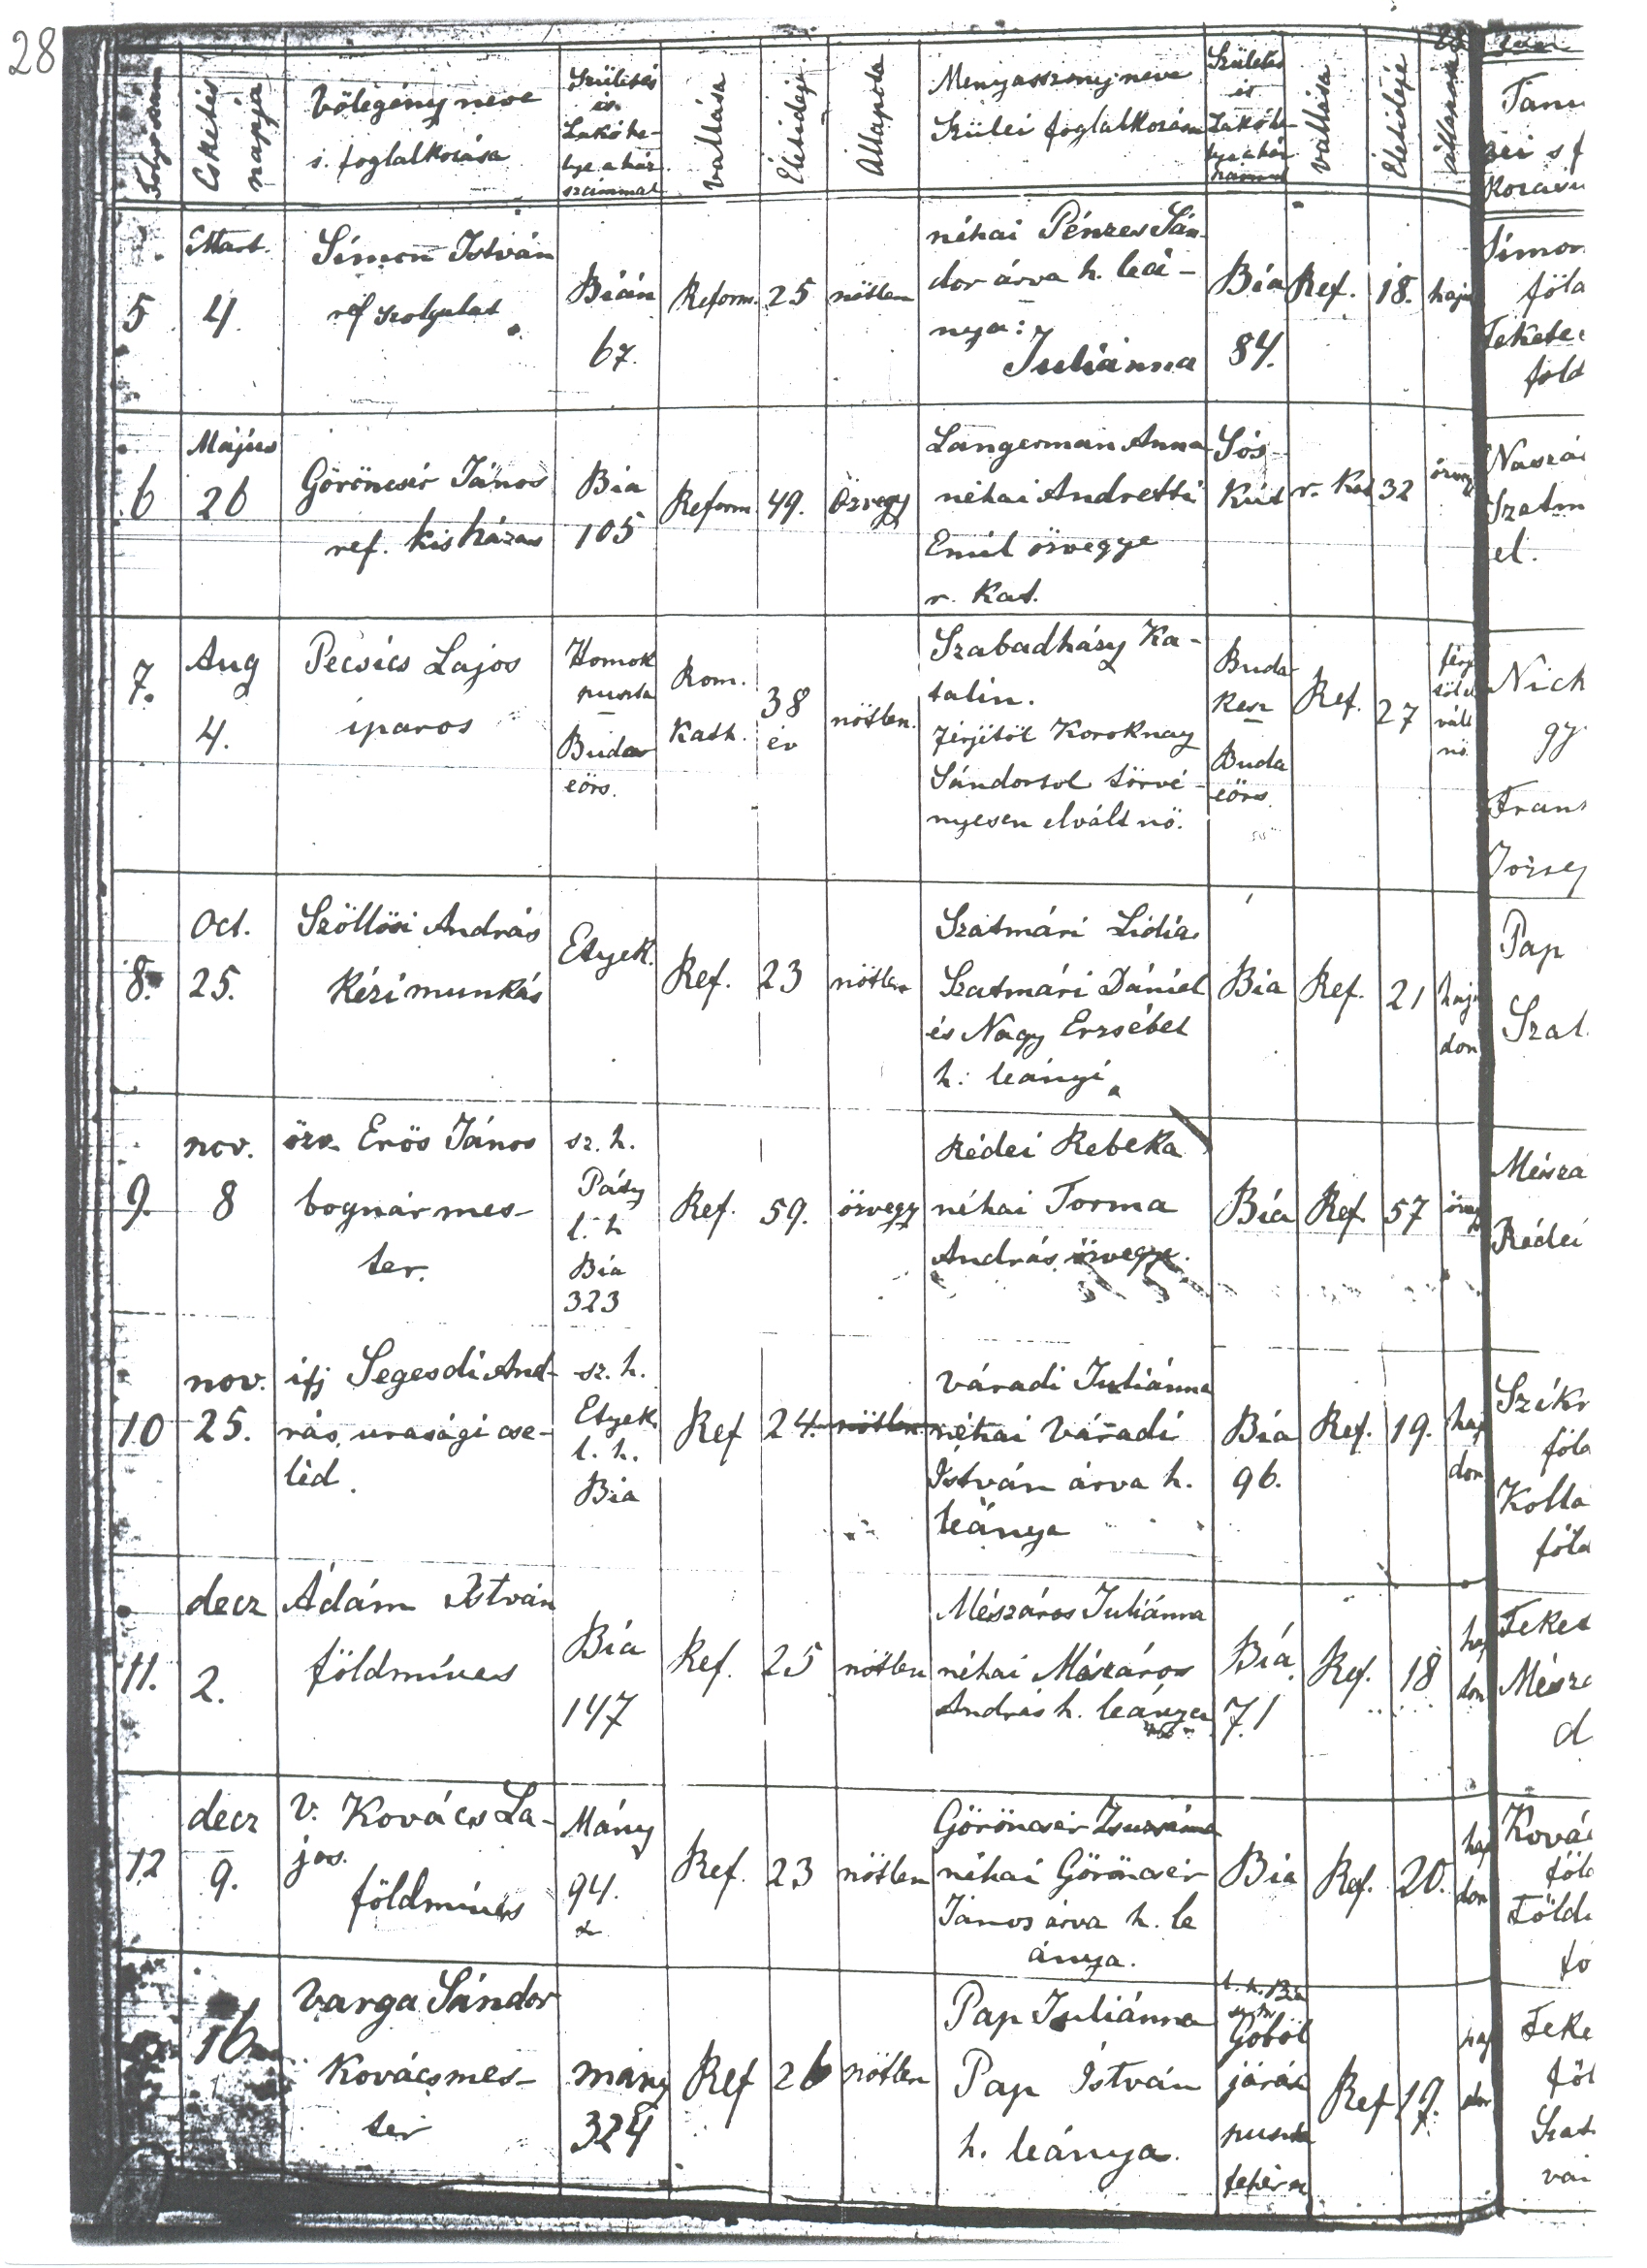 28
Folyószám
Esketés napja
Vőlegény neve
s. foglalkozása
Születés
és
Lakóhe-
lye a ház-
számmal
vallása
Életideje.
Állapota
Menyasszony neve
Szülei foglalkozása
Születés
és
Lakóhe-
lye a ház
számmal
vallása
Életideje
állapota
Tanu
zei s f
Kozásu
5
Mart.
4.
Simon István
ref szolgalat
Bián
67.
Reform.
25
nőtlen
néhai Pénzes Sán-
dor árva h. leá-
nya:
Juliánna
Bia
84.
Ref.
18.
haja
Simon
föld
Fekete
föld
6
Május
26
Göröncsér János
ref. kisházas
Bia
105
Reform.
49.
Özvegy
Langerman Anna
néhai Andretti
Emil özvegye
r. Kat.
Sós-
Kút
r. Kat
32
özvegy
Naszá
Szatm
el.
7.
Aug
4.
Pecsics Lajos
iparos
Homok
puszta
Buda
eörs.
Rom.
Kath.
38
év
nőtlen.
Szabadházy Ka-
talin.
Férjétöl Koroknay
Sándortol törvé-
nyesen elvált nö.
Buda
Kesz
Buda
eörs.
Ref.
27
férj
töl el
vált
nö
Nich
gy
Fran
Jozsef
8.
Oct.
25.
Szöllösi András
Kézimunkás
Etyek.
Ref.
23
nőtlen
Szatmári Lidia
Szatmári Dániel
és Nagy Erzsébet
h: leányi
a
Bia
Ref.
21
haja
don
Pap
Szat.
9.
nov.
8
özv. Erös János
bognármes-
ter.
sz. h.
Páty
l. h
Bia
323
Ref.
59.
özvegy
Rédei Rebeka
néhai Torma
András özvegye.
Bia
Ref.
57
özvegy
Mésza
Rédei
10
nov.
25.
ifj Segesdi And-
rás, urasági cse-
léd.
sz. h.
Etyek
l. h.
Bia
Ref
24.
nötlen
Váradi Juliánna
néhai Váradi
István árva h.
leánya
Bia
96.
Ref.
19.
haj
don
Szikr
föld
Kolla
föld
11.
decz
2.
Ádám István
földmíves
Bia
147
Ref.
25
nötlen
Mészáros Juliánna
néhai Mészáros
András h. leánya
Bia
71
Ref.
18
haj
don
Feket
Mésza
d
12
decz
9.
V. Kovács La-
jos.
földmíves
Mány
94.
Ref.
23
nötlen
Göröncsér Zsuzsánna
néhai Göröncsér
János árva h. le
ánya.
Bia
Ref.
20.
haj
don
Ková
föld
Földi
fö
16
Varga Sándor
Kovácsmes-
ter
mány
324
Ref
26
nötlen
Pap Juliánna
Pap István
h. leánya.
l. h. Bia
sz. h.
Göböl
járás
puszta
fehér m
Ref
19.
haj
don
Feke
föl
Szat
vai